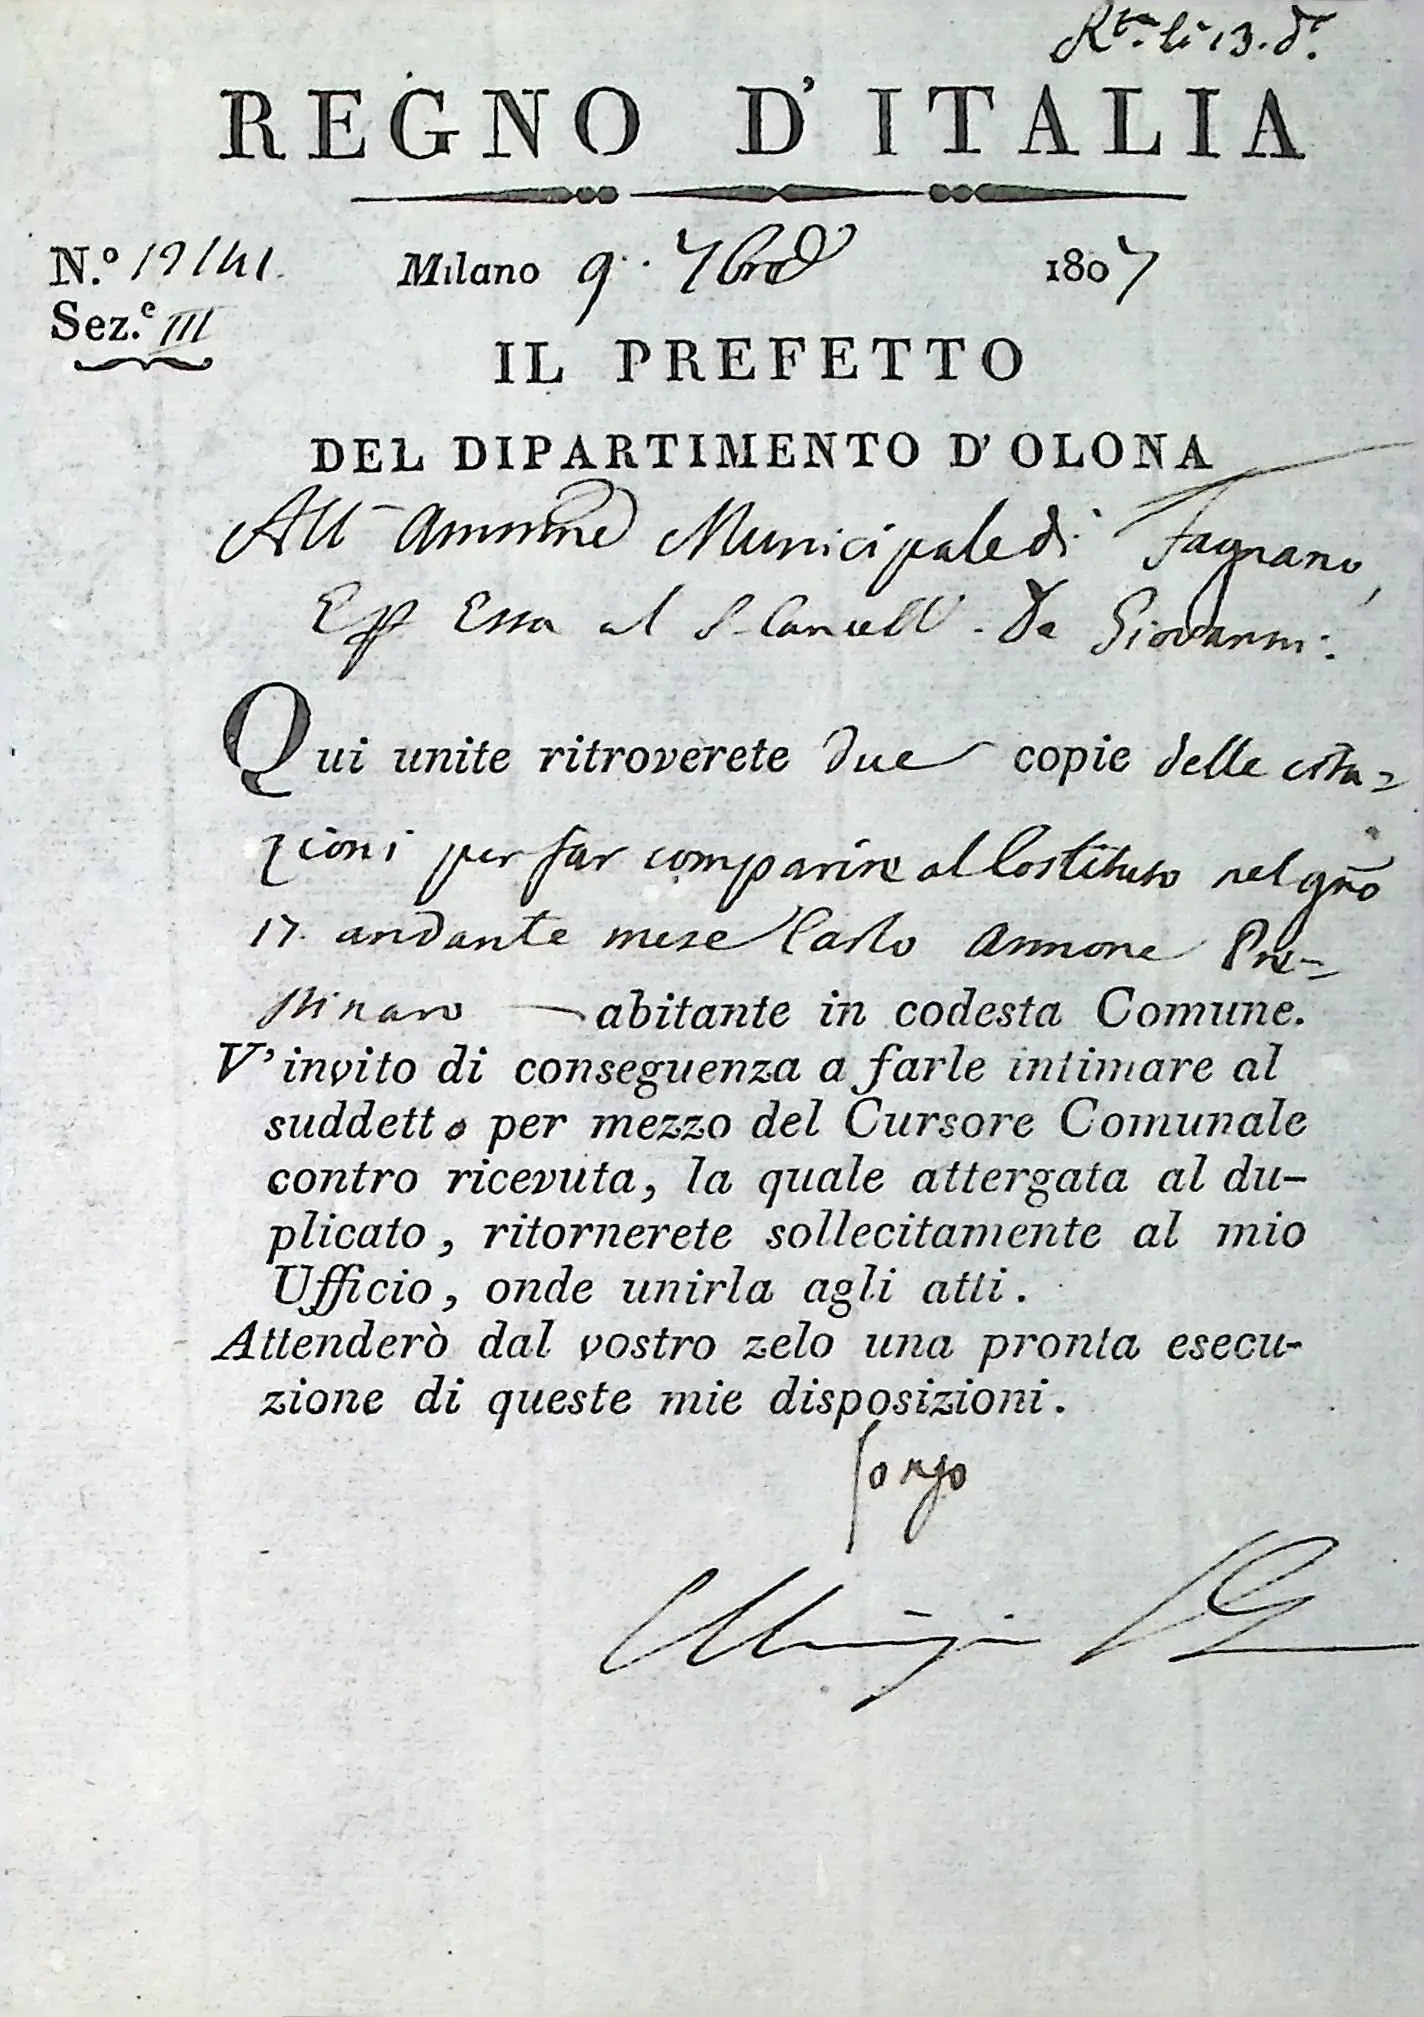 R.ta li 13. d.o
REGNO D'ITALIA
N.º 19141.
Milano 9. 7bre 1807
Sez.e III
IL PREFETTO
DEL DIPARTIMENTO D'OLONA
All' Ammne Municipale di Fagnano,
Essa al S. Cancell. De Giovanni.
Qui unite ritroverete due copie delle cita-
zioni per far comparire al Costituto nel gno
17. andante mese Carlo Annone Pre-
stinaro abitante in codesta Comune.
V'invito di conseguenza a farle intimare al
suddetto per mezzo del Cursore Comunale
contro ricevuta, la quale attergata al du-
plicato, ritornerete sollecitamente al mio
Ufficio, onde unirla agli atti.
Attenderò dal vostro zelo una pronta esecu-
zione di queste mie disposizioni.